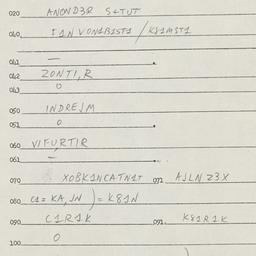 020 ANOND3R S4TUT
040 I1NVON1B1ST1 / K81M1ST1
041 —
042 ZONTI,R
043 0
050 INDREJM
051 0
060 VIFURTIR
061 —
070 XOBK1NCATN1T 071 AJLNZ3X
080 C1=KA,JN ) = K81N
090 C1R1K 091 K81R1K
100 0